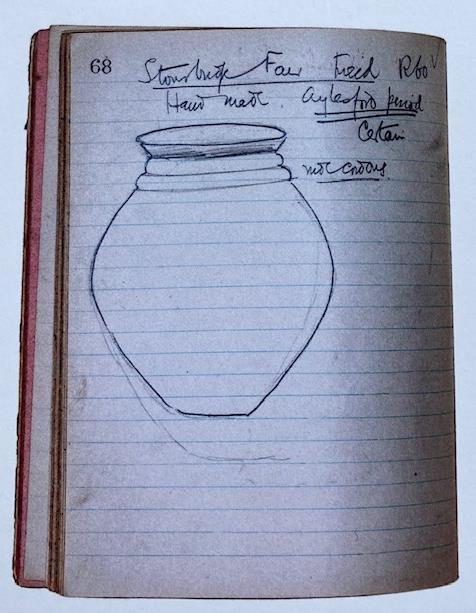 68
Stourbridge Fair Field R60
Hand made. Aylesford period
Certain
not cordons